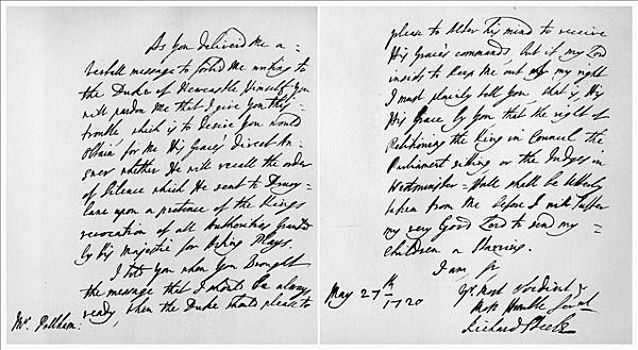 As You deliver'd me a =
verball message to forbid me writing to
the Duke of Newcastle Himself You
will pardon Me that I give You this
trouble which is to desire You would
Obtain for Me His Grace's direct An =
swer whether He will recall the order
of silence which He sent to Drury =
lane upon a pretence of the Kings
revocation of all Authorities Granted
by His Majestie for Acting Plays.
I told You when You Brought
the message that I should be always
ready, when the Duke should please to
Mr. Pelham:
please to alter his mind to receive
His Grace's commands, but if my Lord
insists to keep Me out of my right
I must plainly tell You, that is, His
His Grace by You, that the right of
Petitioning the King in Councill the
Parliament sitting or the Judges in
Westminster - Hall shall be utterly
taken from Me before I will suffer
my very Good Lord to send my =
children a Starving.
I am, Sr
May 27th
1720
Yr. Most Obedient &
Most Humble Servnt
Richard Steele